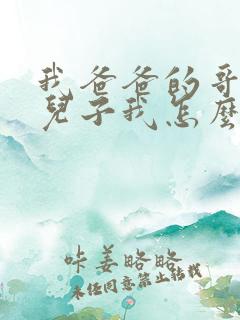 我爸爸的哥
兒子我怎麼
咔姜略略
未经同意禁止转载